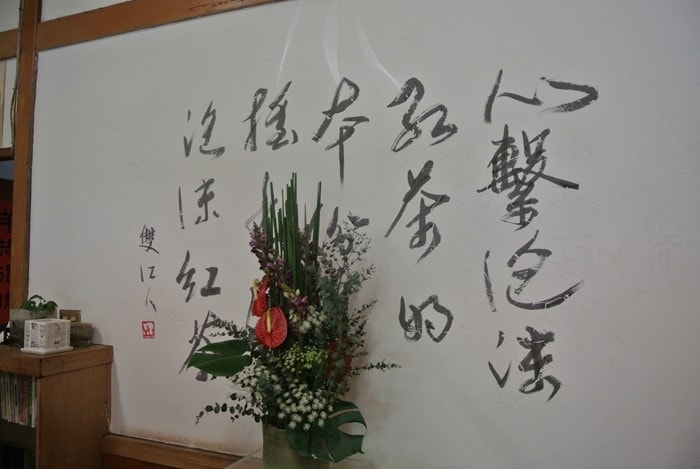 心繫泡沫
紅茶的
本分
搖
泡沫紅茶
雙江人